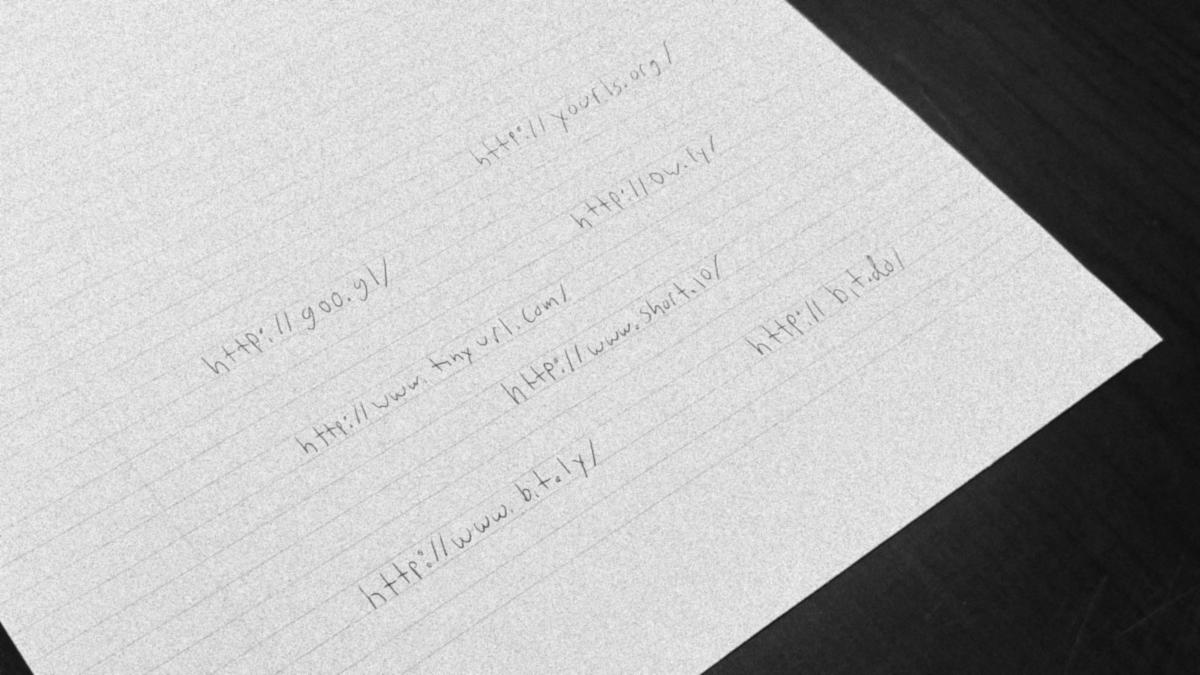 http://yourls.org/
http://ow.ly/
http://goo.gl/
http://www.tinyurl.com/
http://www.short.io/
http://bit.do/
http://www.bit.ly/